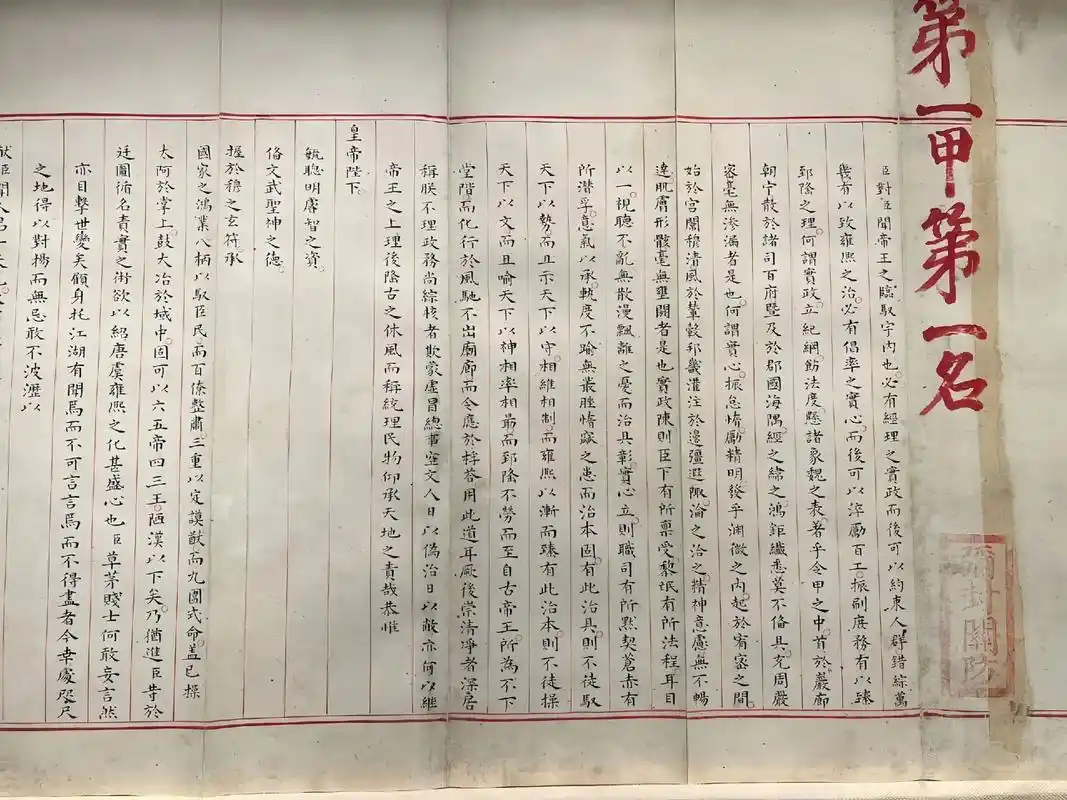 第一甲第一名
彌封關防
臣對臣聞帝王之臨馭宇內也必有經理之實政而後可以約束人群錯綜萬
幾有以致雍熙之治必有倡率之實心而後可以淬勵百工振刷庶務有以臻
郅隆之理何謂實政立紀綱飭法度懸諸象魏之表著乎令甲之中首於巖廊
朝宁散於諸司百府暨及於郡國海隅經之緯之鴻鉅纖悉莫不俻具充周嚴
密毫無滲漏者是也何謂實心振怠惰勵精明發乎淵微之內起於宥密之間
始於宮闈穆清風於輦轂邦畿灌注於邊疆遐陬淪之洽之精神意慮無不暢
達肌膚形骸毫無壅閼者是也實政陳則臣下有所禀受黎氓有所法程耳目
以一視聽不亂無散漫飄離之憂而治具彰實心立則職司有所默契蒼赤有
所潛孚意氣以承軌度不踰無叢脞惰窳之患而治本固有此治具則不徒馭
天下以勢而且示天下以守相維相制而雍熙以漸而臻有此治本則不徒操
天下以文而且喻天下以神相率相勗而郅隆不勞而至自古帝王所為不下
堂階而化行於風馳不出廟廊而令應於桴答用此道耳厥後崇清凈者深居
稱朕不理政務尚綜核者欺蒙虛冒總事空文人日以偽治日以敝亦何以維
帝王之上理後隆古之休風而稱統理民物仰承天地之責哉恭惟
皇帝陛下
毓聰明睿智之資
俻文武聖神之德
握於穆之玄符承
國家之鴻業八柄以馭臣民而百僚整肅三重以定謨猷而九圍式命蓋已操
太阿於掌上鼓大冶於域中固可以六五帝四三王陋漢以下矣乃猶進臣等於
廷圖循名責實之術欲以紹唐虞雍熙之化甚盛心也臣草茅賤士何敢妄言然
亦目擊世變矣顧身托江湖有聞焉而不可言言焉而不得盡者今幸處咫尺
之地得以對揚而無忌敢不披瀝以